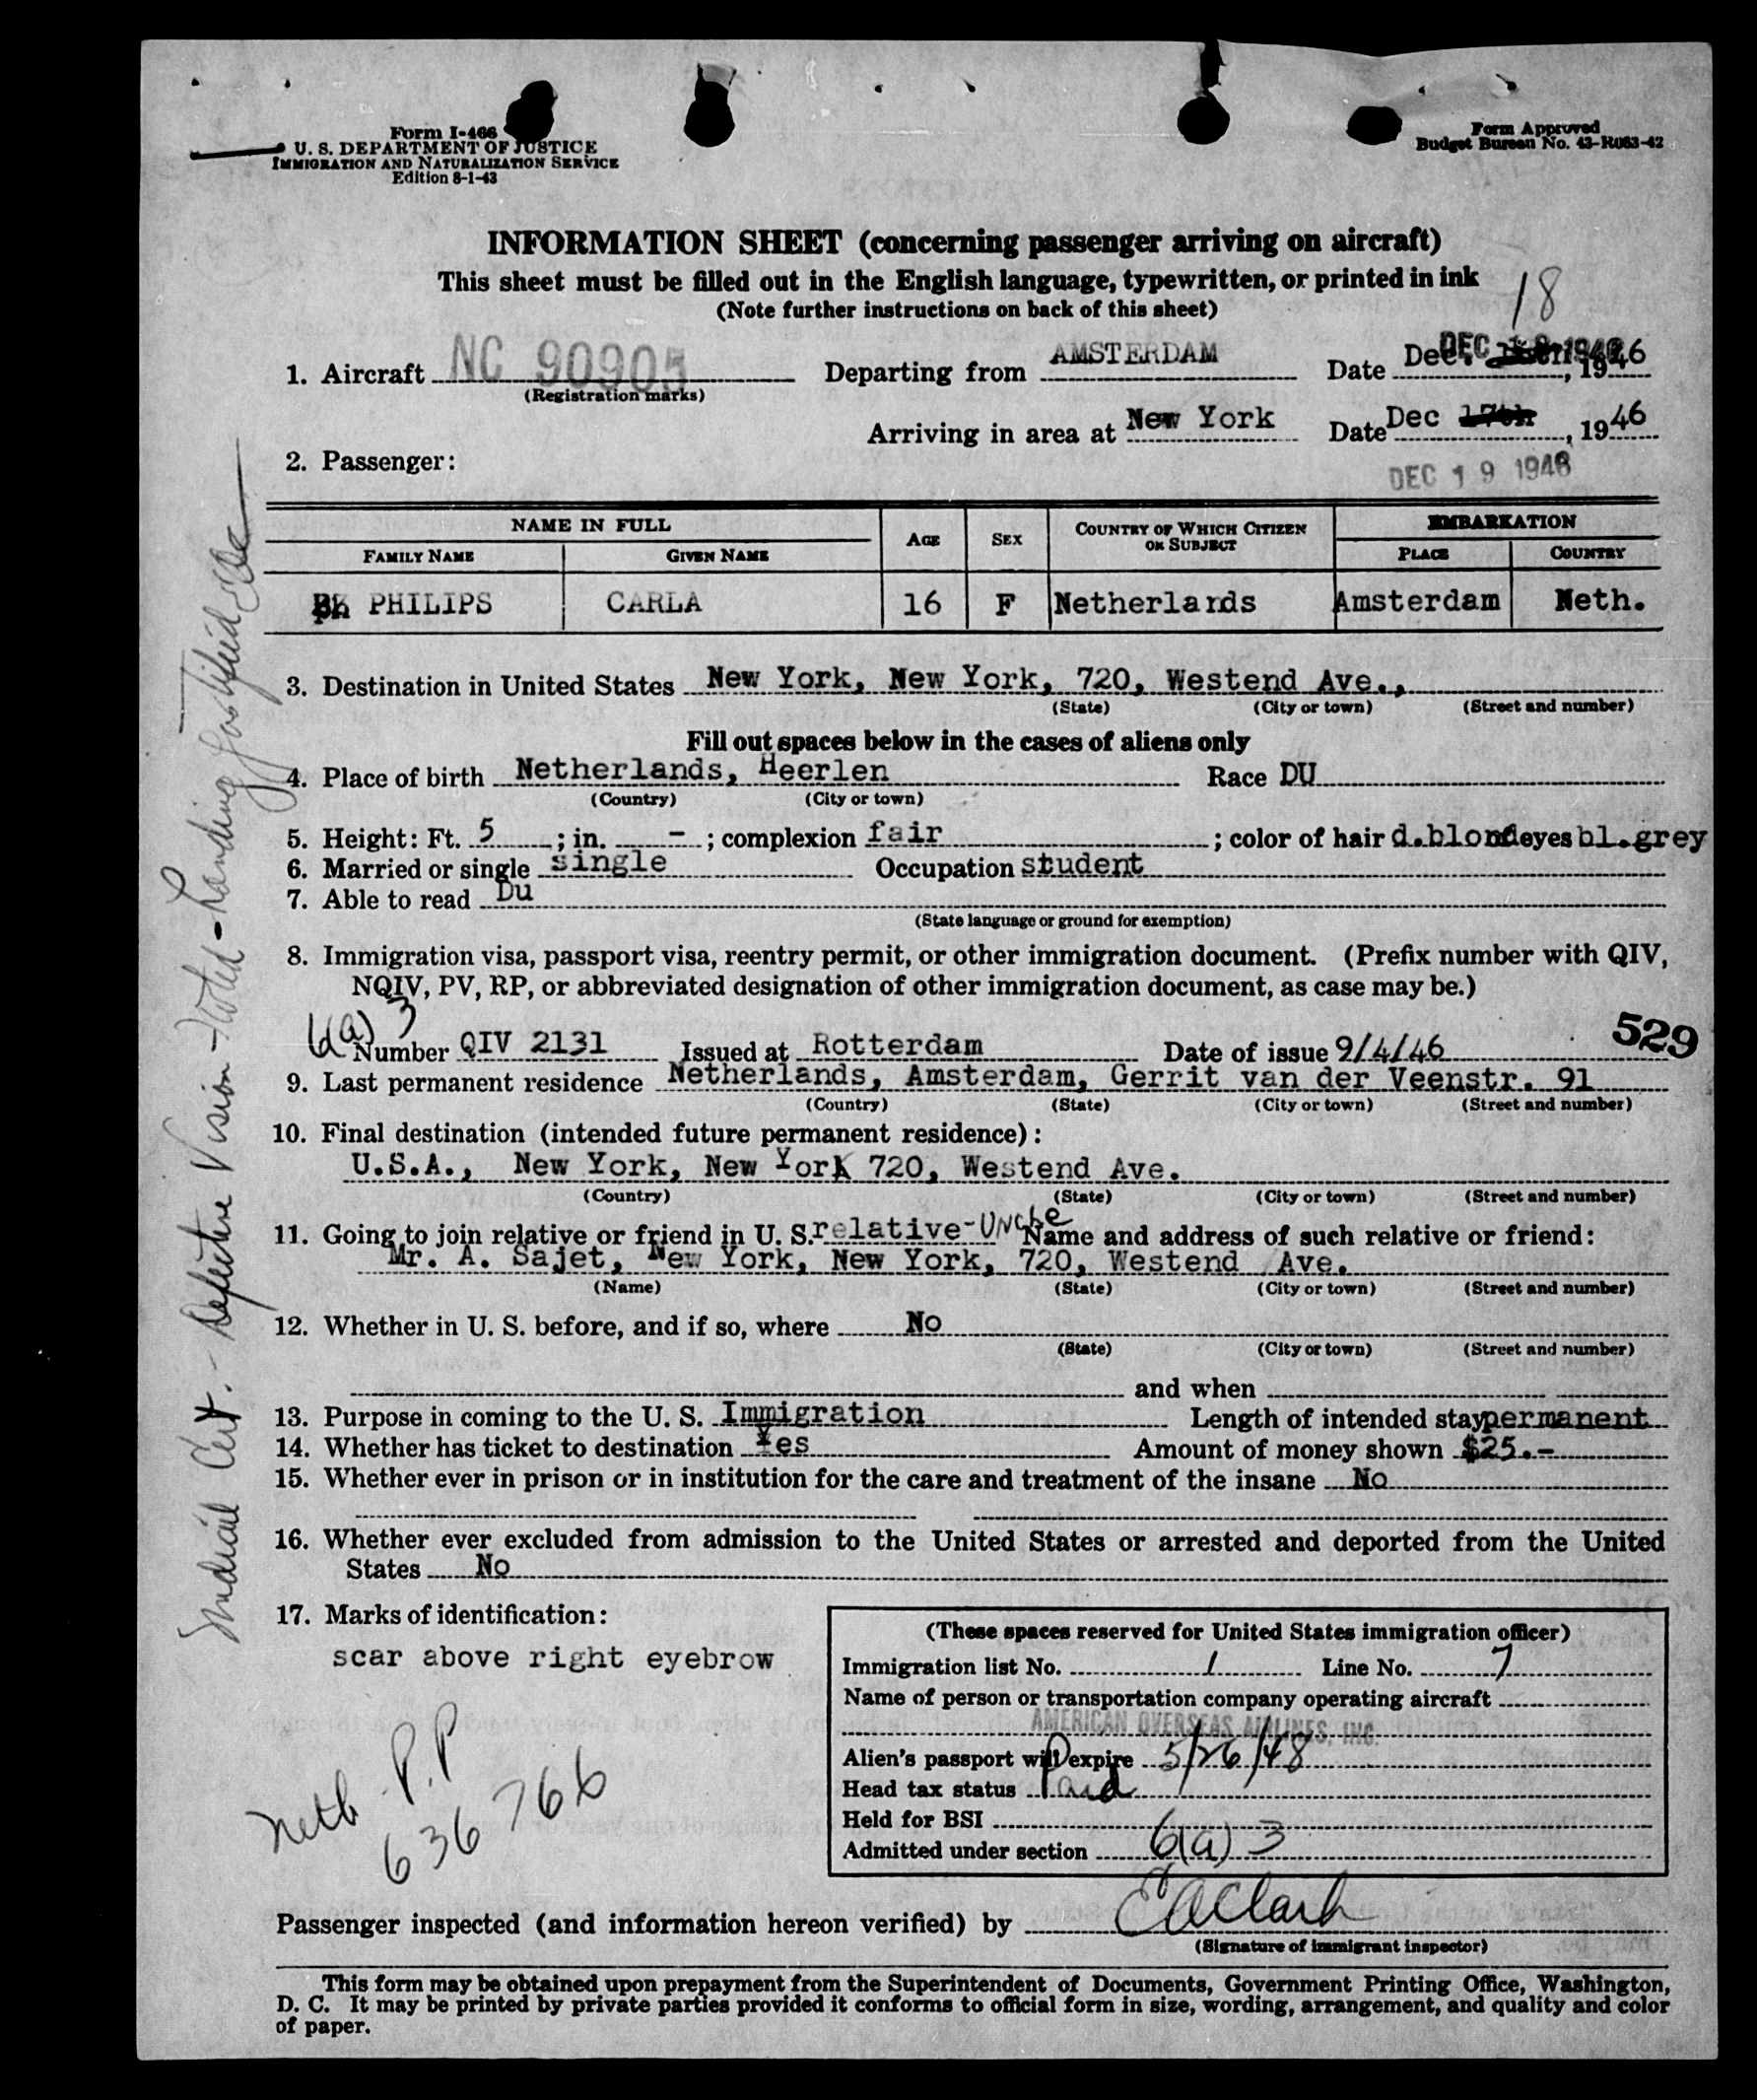 Form I-466
U. S. DEPARTMENT OF JUSTICE
IMMIGRATION AND NATURALIZATION SERVICE
Edition 8-1-43
Form Approved
Budget Bureau No. 43-R063-42
INFORMATION SHEET (concerning passenger arriving on aircraft)
This sheet must be filled out in the English language, typewritten, or printed in ink
(Note further instructions on back of this sheet)
18
1. Aircraft NC 90905 Departing from AMSTERDAM Date Dec. , 1946
(Registration marks)
Arriving in area at New York Date Dec 17th , 1946
2. Passenger:
DEC 19 1946
NAME IN FULL AGE SEX COUNTRY OF WHICH CITIZEN OR SUBJECT EMBARKATION
FAMILY NAME GIVEN NAME PLACE COUNTRY
PHILIPS CARLA 16 F Netherlands Amsterdam Neth.
3. Destination in United States New York, New York, 720, Westend Ave.,
(State) (City or town) (Street and number)
Fill out spaces below in the cases of aliens only
4. Place of birth Netherlands, Heerlen Race DU
(Country) (City or town)
5. Height: Ft. 5 ; in. - ; complexion fair ; color of hair d.blond eyes bl.grey
6. Married or single single Occupation student
7. Able to read Du
(State language or ground for exemption)
8. Immigration visa, passport visa, reentry permit, or other immigration document. (Prefix number with QIV,
NQIV, PV, RP, or abbreviated designation of other immigration document, as case may be.)
6(a) 3
529
Number QIV 2131 Issued at Rotterdam Date of issue 9/4/46
9. Last permanent residence Netherlands, Amsterdam, Gerrit van der Veenstr. 91
(Country) (State) (City or town) (Street and number)
10. Final destination (intended future permanent residence):
U.S.A., New York, New York 720, Westend Ave.
(Country) (State) (City or town) (Street and number)
11. Going to join relative or friend in U. S. relative-Uncle Name and address of such relative or friend:
Mr. A. Sajet, New York, New York, 720, Westend Ave.
(Name) (State) (City or town) (Street and number)
12. Whether in U. S. before, and if so, where No
(State) (City or town) (Street and number)
and when
13. Purpose in coming to the U. S. Immigration Length of intended stay permanent
14. Whether has ticket to destination Yes Amount of money shown $25.-
15. Whether ever in prison or in institution for the care and treatment of the insane No
16. Whether ever excluded from admission to the United States or arrested and deported from the United
States No
17. Marks of identification:
scar above right eyebrow
Neth P.P
636766
(These spaces reserved for United States immigration officer)
Immigration list No. 1 Line No. 7
Name of person or transportation company operating aircraft
AMERICAN OVERSEAS AIRLINES, INC.
Alien's passport will expire 5/26/48
Head tax status Paid
Held for BSI
Admitted under section 6(a) 3
Passenger inspected (and information hereon verified) by EAClark
(Signature of immigrant inspector)
This form may be obtained upon prepayment from the Superintendent of Documents, Government Printing Office, Washington,
D. C. It may be printed by private parties provided it conforms to official form in size, wording, arrangement, and quality and color
of paper.
Medical Cert. - Defective Vision - Noted - Landing